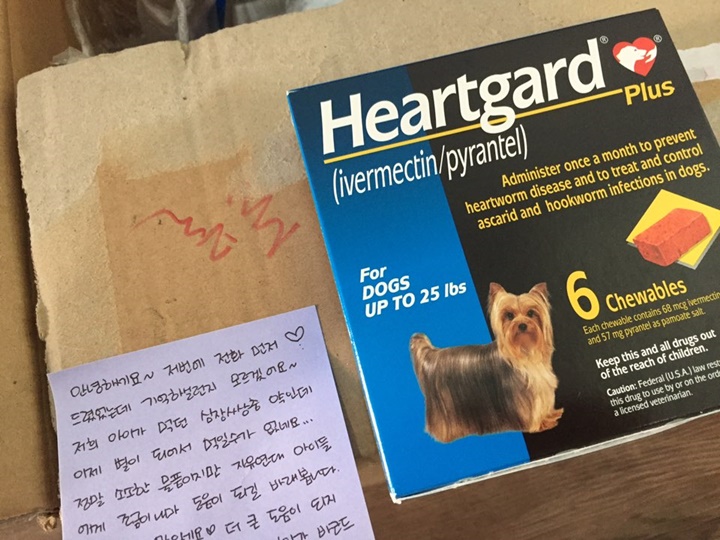 Heartgard® ®
Plus
(ivermectin/pyrantel)
Administer once a month to prevent
heartworm disease and to treat and control
ascarid and hookworm infections in dogs.
For
DOGS
UP TO 25 lbs
6 Chewables
Each chewable contains 68 mcg ivermectin
and 57 mg pyrantel as pamoate salt.
Keep this and all drugs out
of the reach of children.
Caution: Federal (U.S.A.) law rest
this drug to use by or on the orde
a licensed veterinarian.
안녕하세요~ 저번에 전화 먼저 ♡
드렸었는데 기억하실런지 모르겠어요~
저희 아이가 먹던 심장사상충 약인데
이제 별이 되어서 먹일수가 없네요...
정말 소소한 물품이지만 자유연대 아이들
에게 조금이나마 도움이 되길 바래봅니다.
♡ 더 큰 도움이 되지